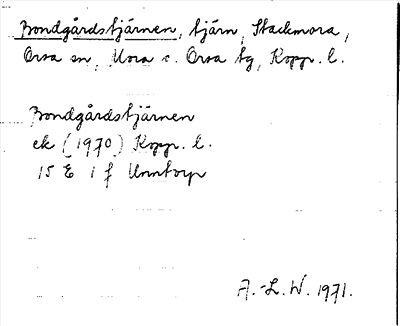 Bondgårdstjärnen, tjärn, Stackmora,
Orsa sn, Mora o. Orsa tg, Kopp. l.
Bondgårdstjärnen
ek (1970) Kopp. l.
15 E 1 f Unntorp
A.-L. W. 1971.